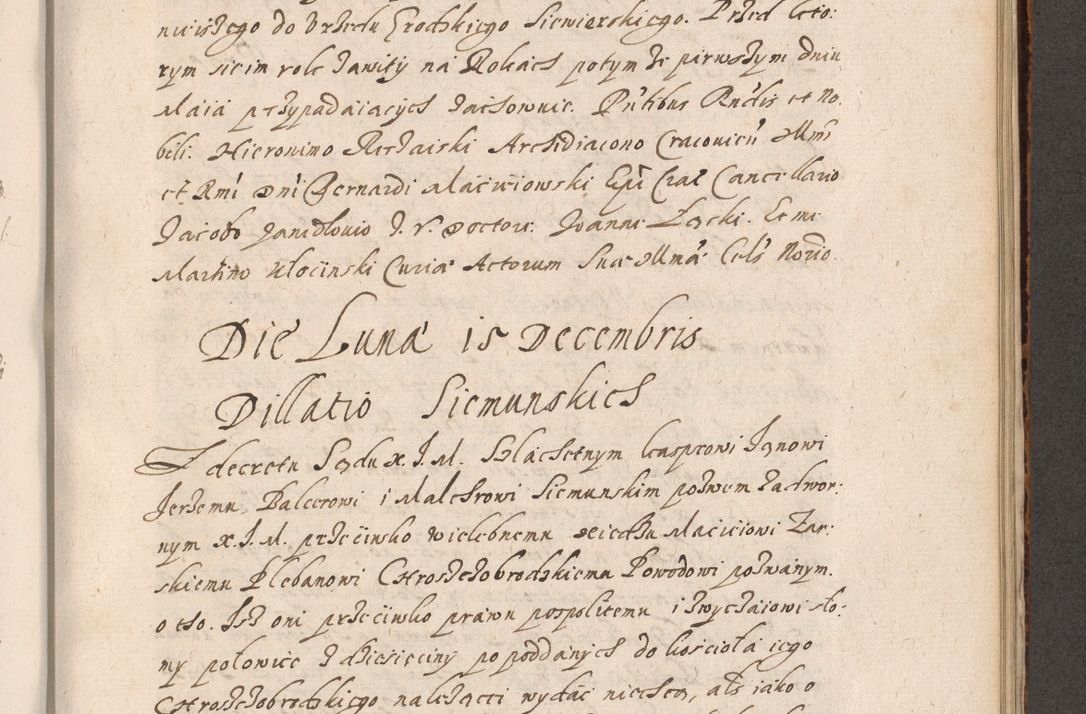 nieiszego do Vrzędu Grodzkiego Siewierskiego. Przed kto:
rym sie im role zawity na Rokach potym ze pierwszym dniu
Maia przypadaiących zachownie. Pntibus Rndis et No.
bili. Hieronimo Rerzaiski Archidiacono Cracovien Illmi
et Rmi Dni Bernardi Macieiowski Epi Crac Cancellario
Jacobo Janidlovio J. V. Doctore. Joanne Zącki. Et me
Martino Kłocinski Curiæ Actorum Suæ Illmæ Cels Norio.
Die Lunæ 15 Decembris
Dillatio Siemunskich
Z decretu Sądu X. J. M. Szlachetnym Casprowi Janowi
Jerzemu Balcerowi i Malchrowi Siemunskim pozwem zadwor:
nym X. J. M. przeciwko wielebnemu Xiedzu Macieiowi Zar:
skiemu Plebanowi Choroszczobrodzkiemu Powodowi pozwanym.
o tho. Isz oni przeciwko prawu pospolitemu i zwyczaiowi sto:
my połowice z dziesieciny po poddanych do kościoła iego
Choroszczobrodzkiego należącei wydac niechcą, als iako o